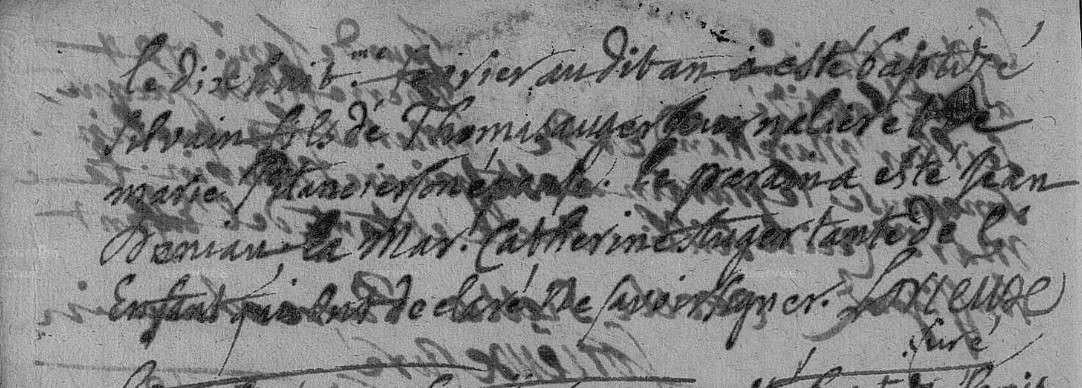 le dix huit.me fevrier audit an a esté baptizé
silvain fils de Thomas auger journalier et de
marie pitancier son épouse. le parain a esté Jean
la Mar. Catherine auger tante de l'
Enfant qui ont declaré ne savoir signer.
Curé